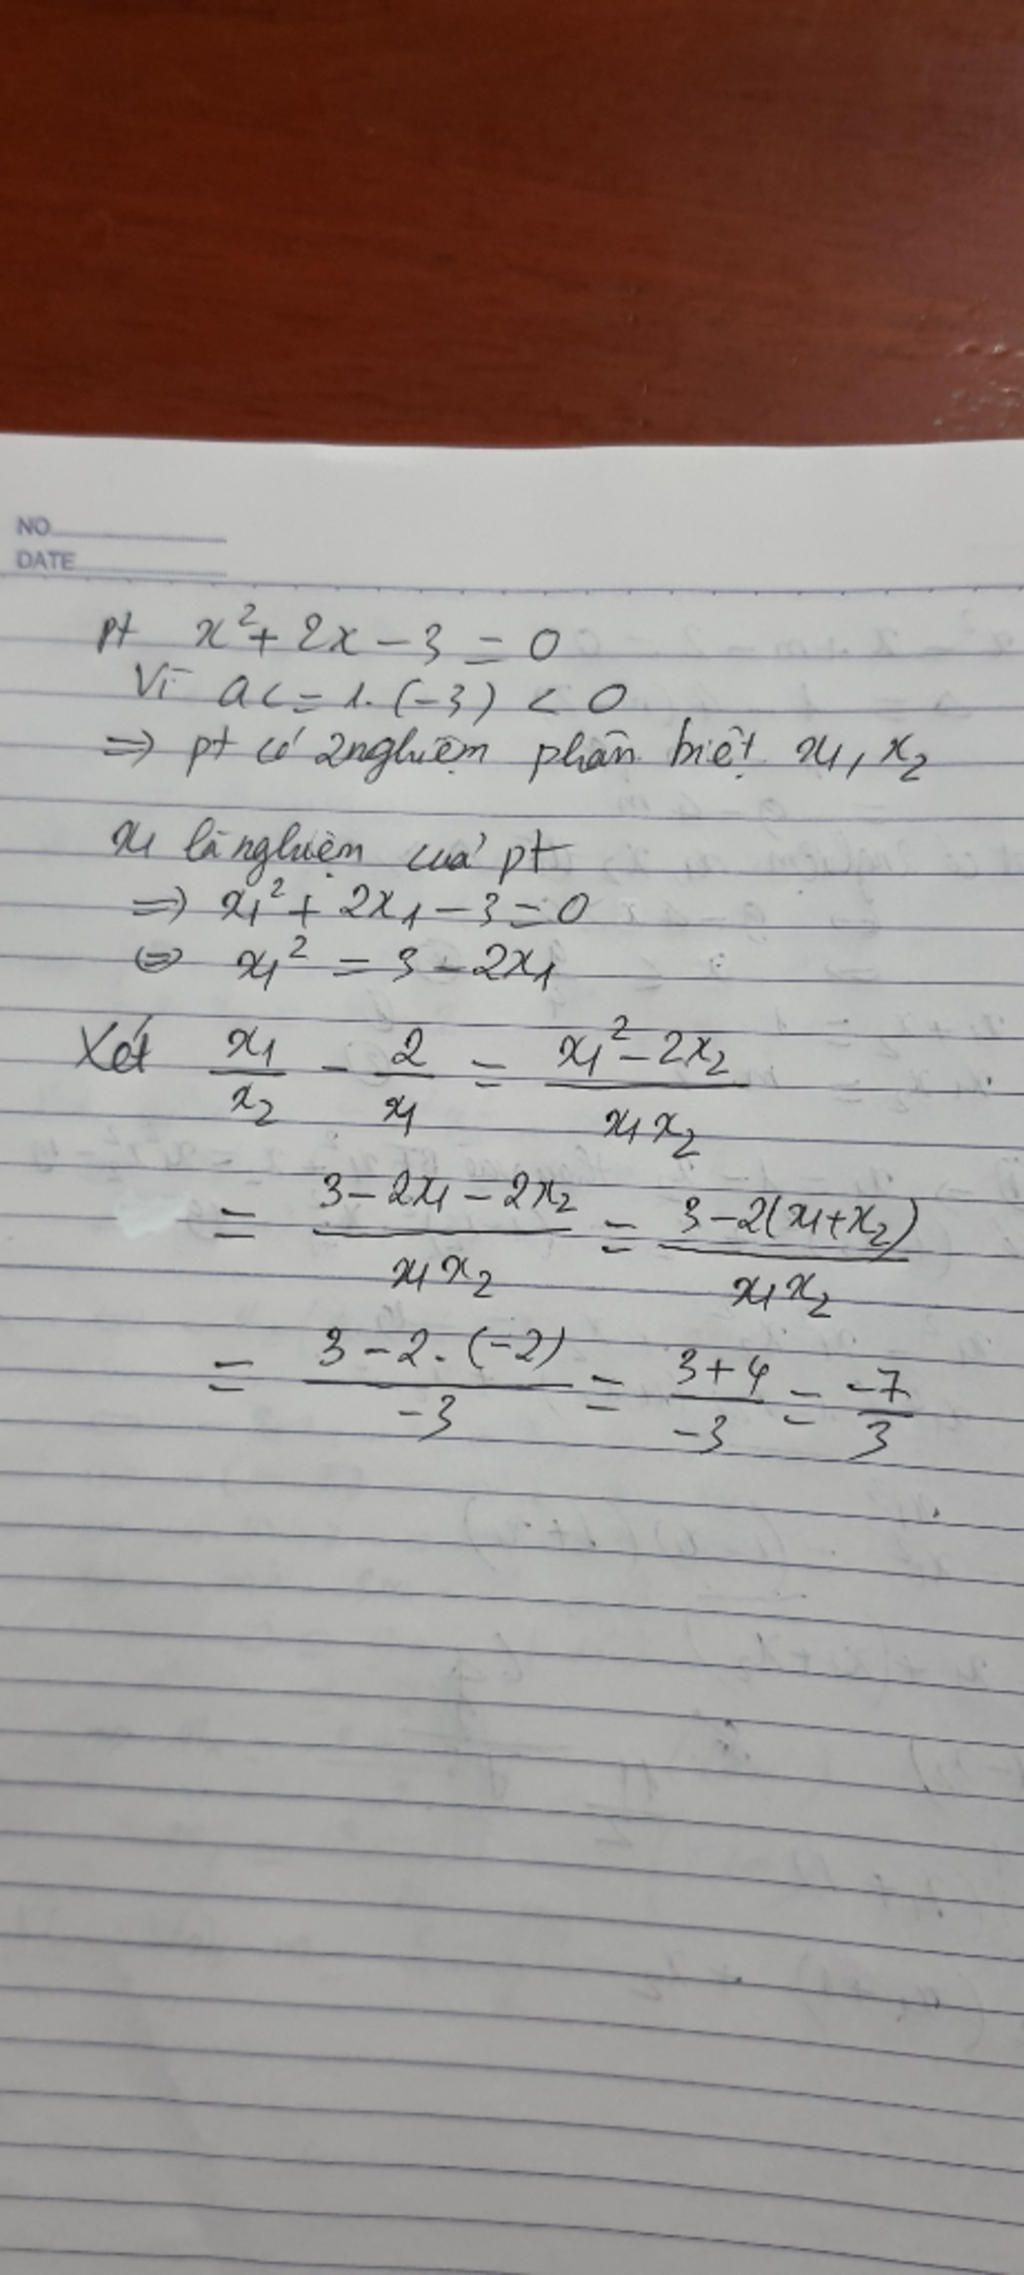 NO
DATE
pt x² + 2x - 3 = 0
Vì ac = 1. (-3) < 0
=> pt có 2 nghiệm phân biệt x₁, x₂
x₁ là nghiệm của pt
=> x₁² + 2x₁ - 3 = 0
<=> x₁² = 3 - 2x₁
Xét x₁/x₂ - 2/x₁ = (x₁² - 2x₂)/(x₁x₂)
= (3 - 2x₁ - 2x₂)/(x₁x₂) = (3 - 2(x₁+x₂))/(x₁x₂)
= (3 - 2. (-2))/(-3) = (3+4)/(-3) = -7/3